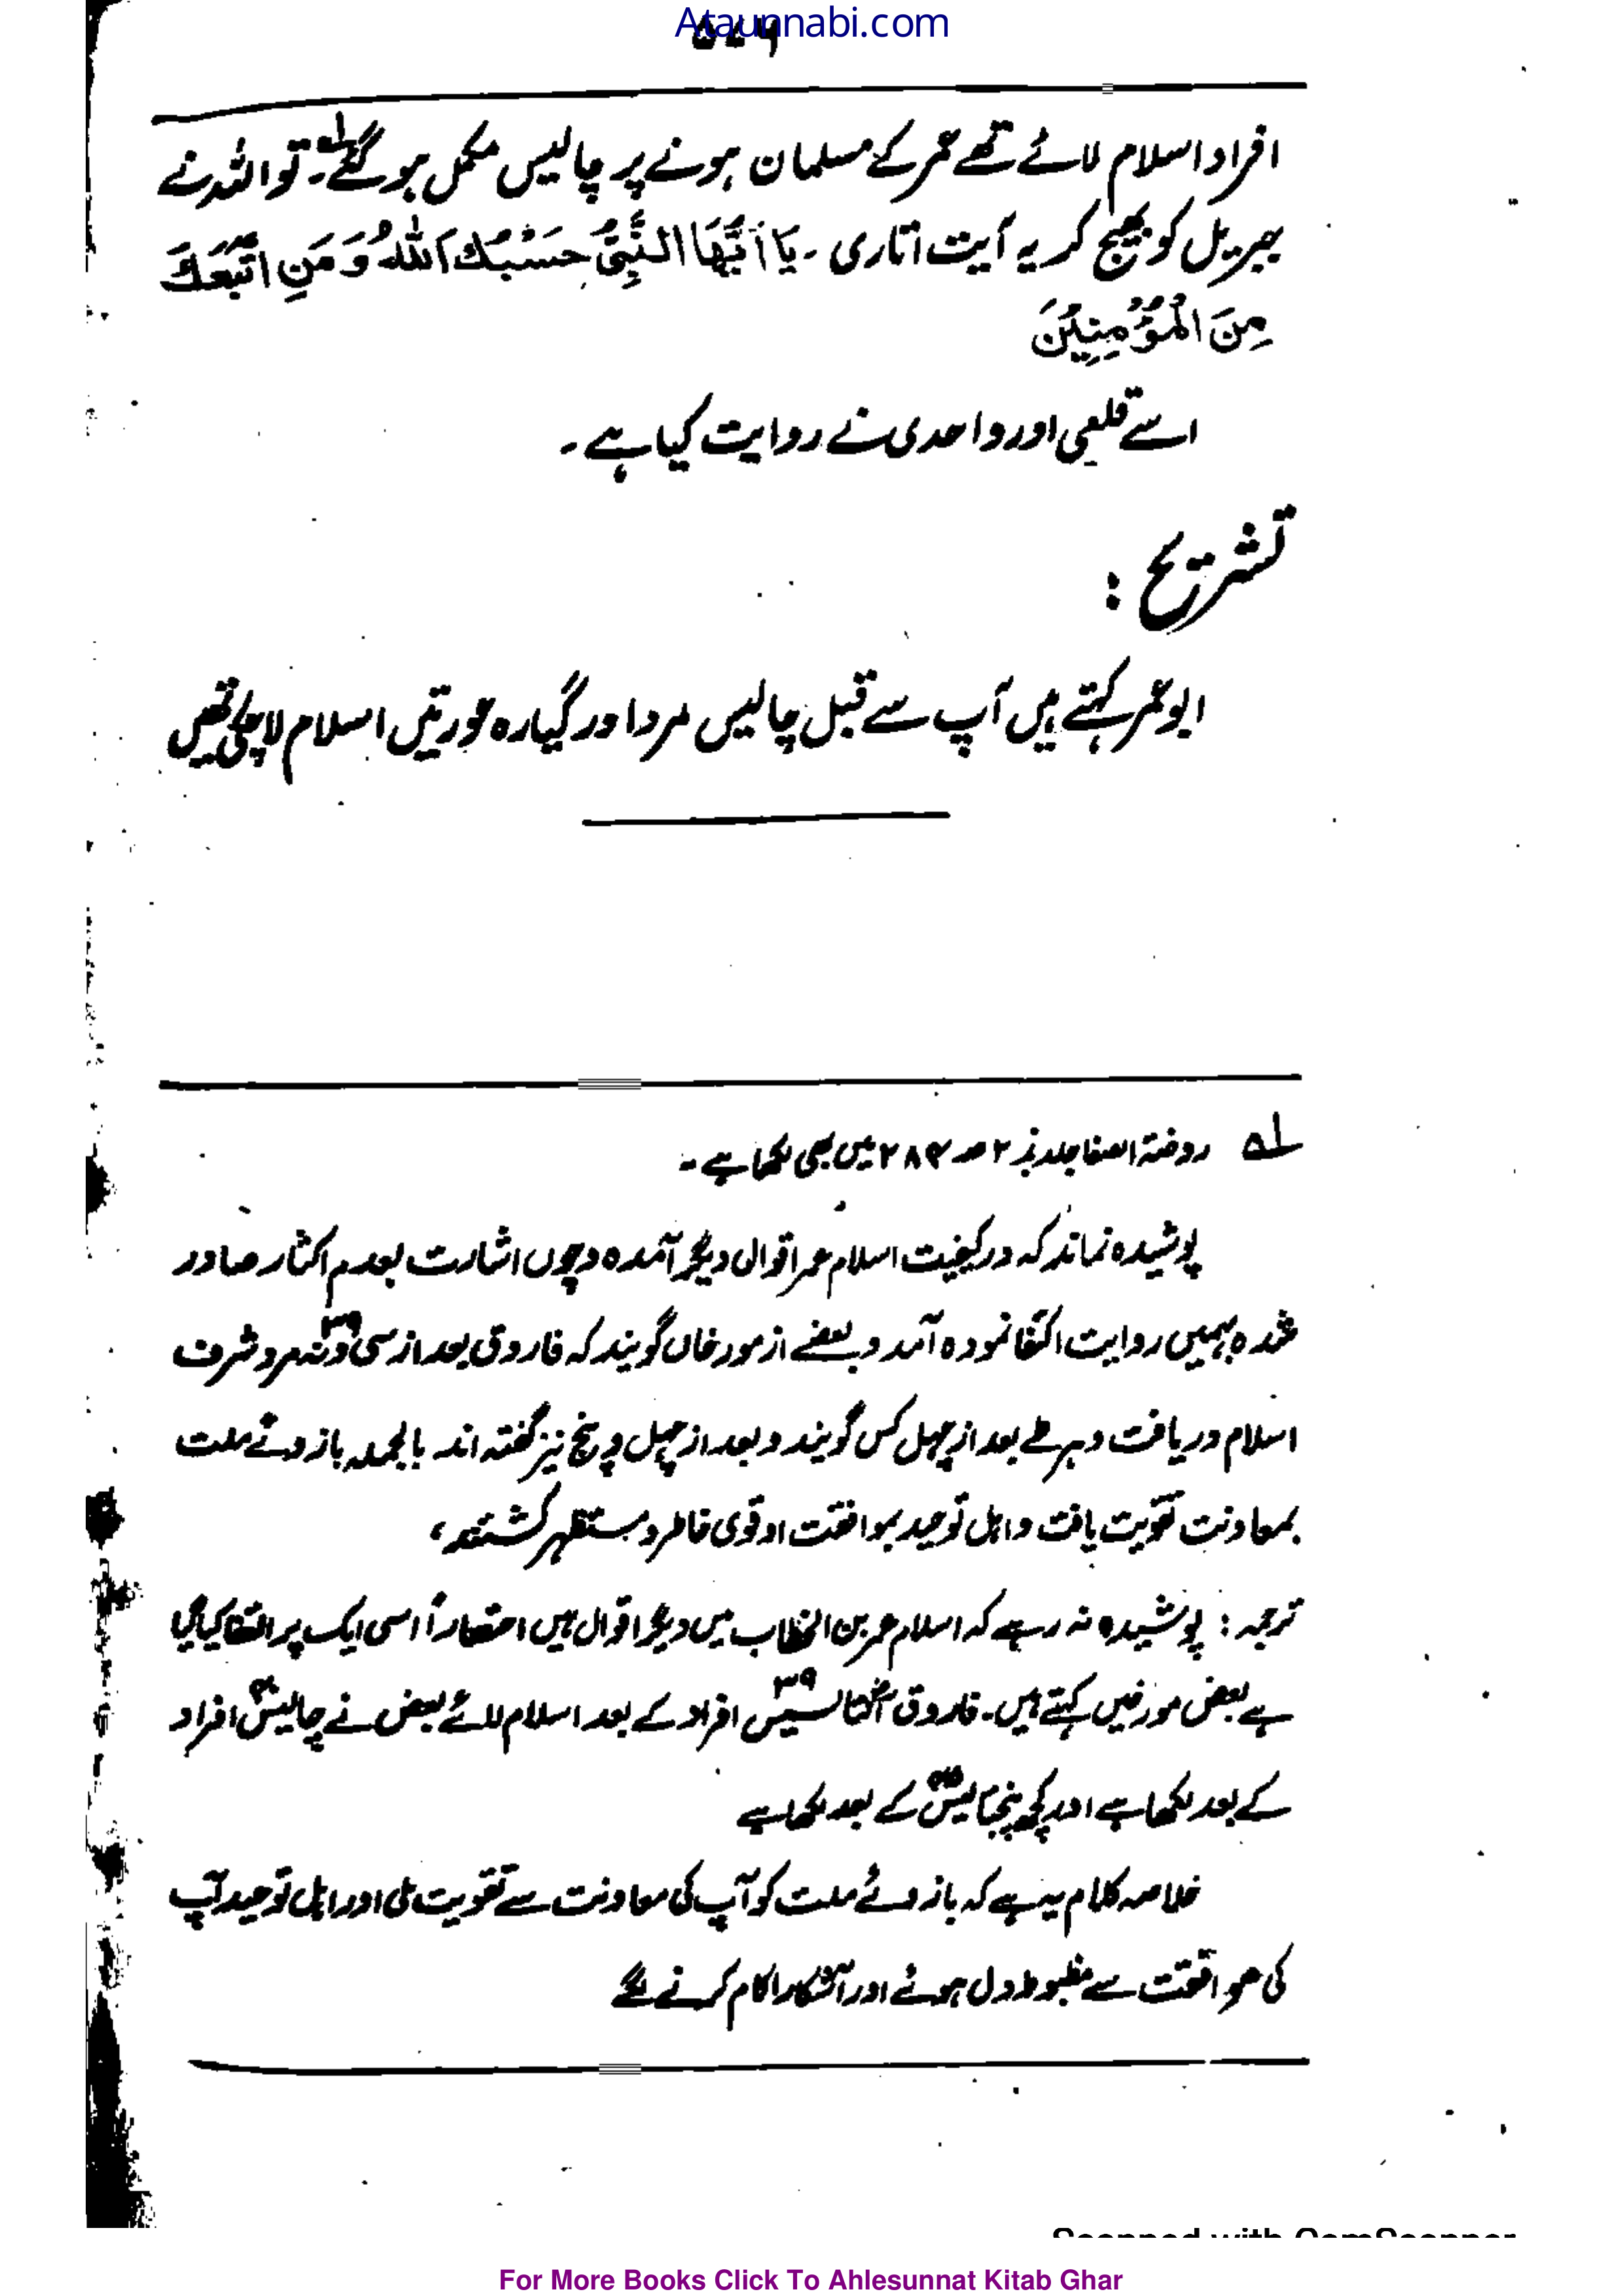 Ataunnabi.com
افراد اسلام لائے تھے عمر کے مسلمان ہونے پر چالیس مکمل ہو گئے۔ لہ تو اللہ نے
جبریل کو بھیج کر یہ آیت اتاری ۔ یَا اَیُّهَا النَّبِیُّ حَسْبُكَ اللهُ وَمَنِ اتَّبَعَكَ
مِنَ الْمُؤْمِنِیْنَ
اسے قلعی اور واحدی نے روایت کیا ہے ۔
تشریح :
ابو عمر کہتے ہیں آپ سے قبل چالیس مرد اور گیارہ عورتیں اسلام لا چکی تھیں
لہ روضۃ الصفا جلد نمبر ۲ صہ ۲۸۴ میں بھی لکھا ہے ۔
پوشیدہ نماند کہ در کیفیت اسلام عمر اقوال دیگر آمدہ و چوں اشارت بعدم اکثار صادر
شدہ بہمیں روایت اکتفا نمودہ آمد و بعضے از مورخاں گویند کہ فاروق بعد از سی و نہ ۳۹ مرد شرف
اسلام دریافت و برخے بعد از چہل کس گویند و بعد از چہل و پنج نیز گفتہ اند بالجملہ بازوئے ملت
بمعاونت تقویت یافت و اہل توحید بموافقت او قوی خاطر و مستظہر گشتند ،
ترجمہ : پوشیدہ نہ رہے کہ اسلام عمر بن الخطاب میں دیگر اقوال ہیں اختصاراً اسی ایک پر اکتفا کیا گیا
ہے بعض مورخین کہتے ہیں ۔ فاروق انتالیس ۳۹ افراد کے بعد اسلام لائے بعض نے چالیس ۴۰ افراد
کے بعد لکھا ہے اور کچھ پنتالیس ۴۵ کے بعد لکھا ہے
خلاصہ کلام یہ ہے کہ بازوئے ملت کو آپ کی معاونت سے تقویت ملی اور اہل توحید آپ
کی موافقت سے مظبوط دل ہوئے اور آشکارا کام کرنے لگے
Scanned with CamScanner
For More Books Click To Ahlesunnat Kitab Ghar